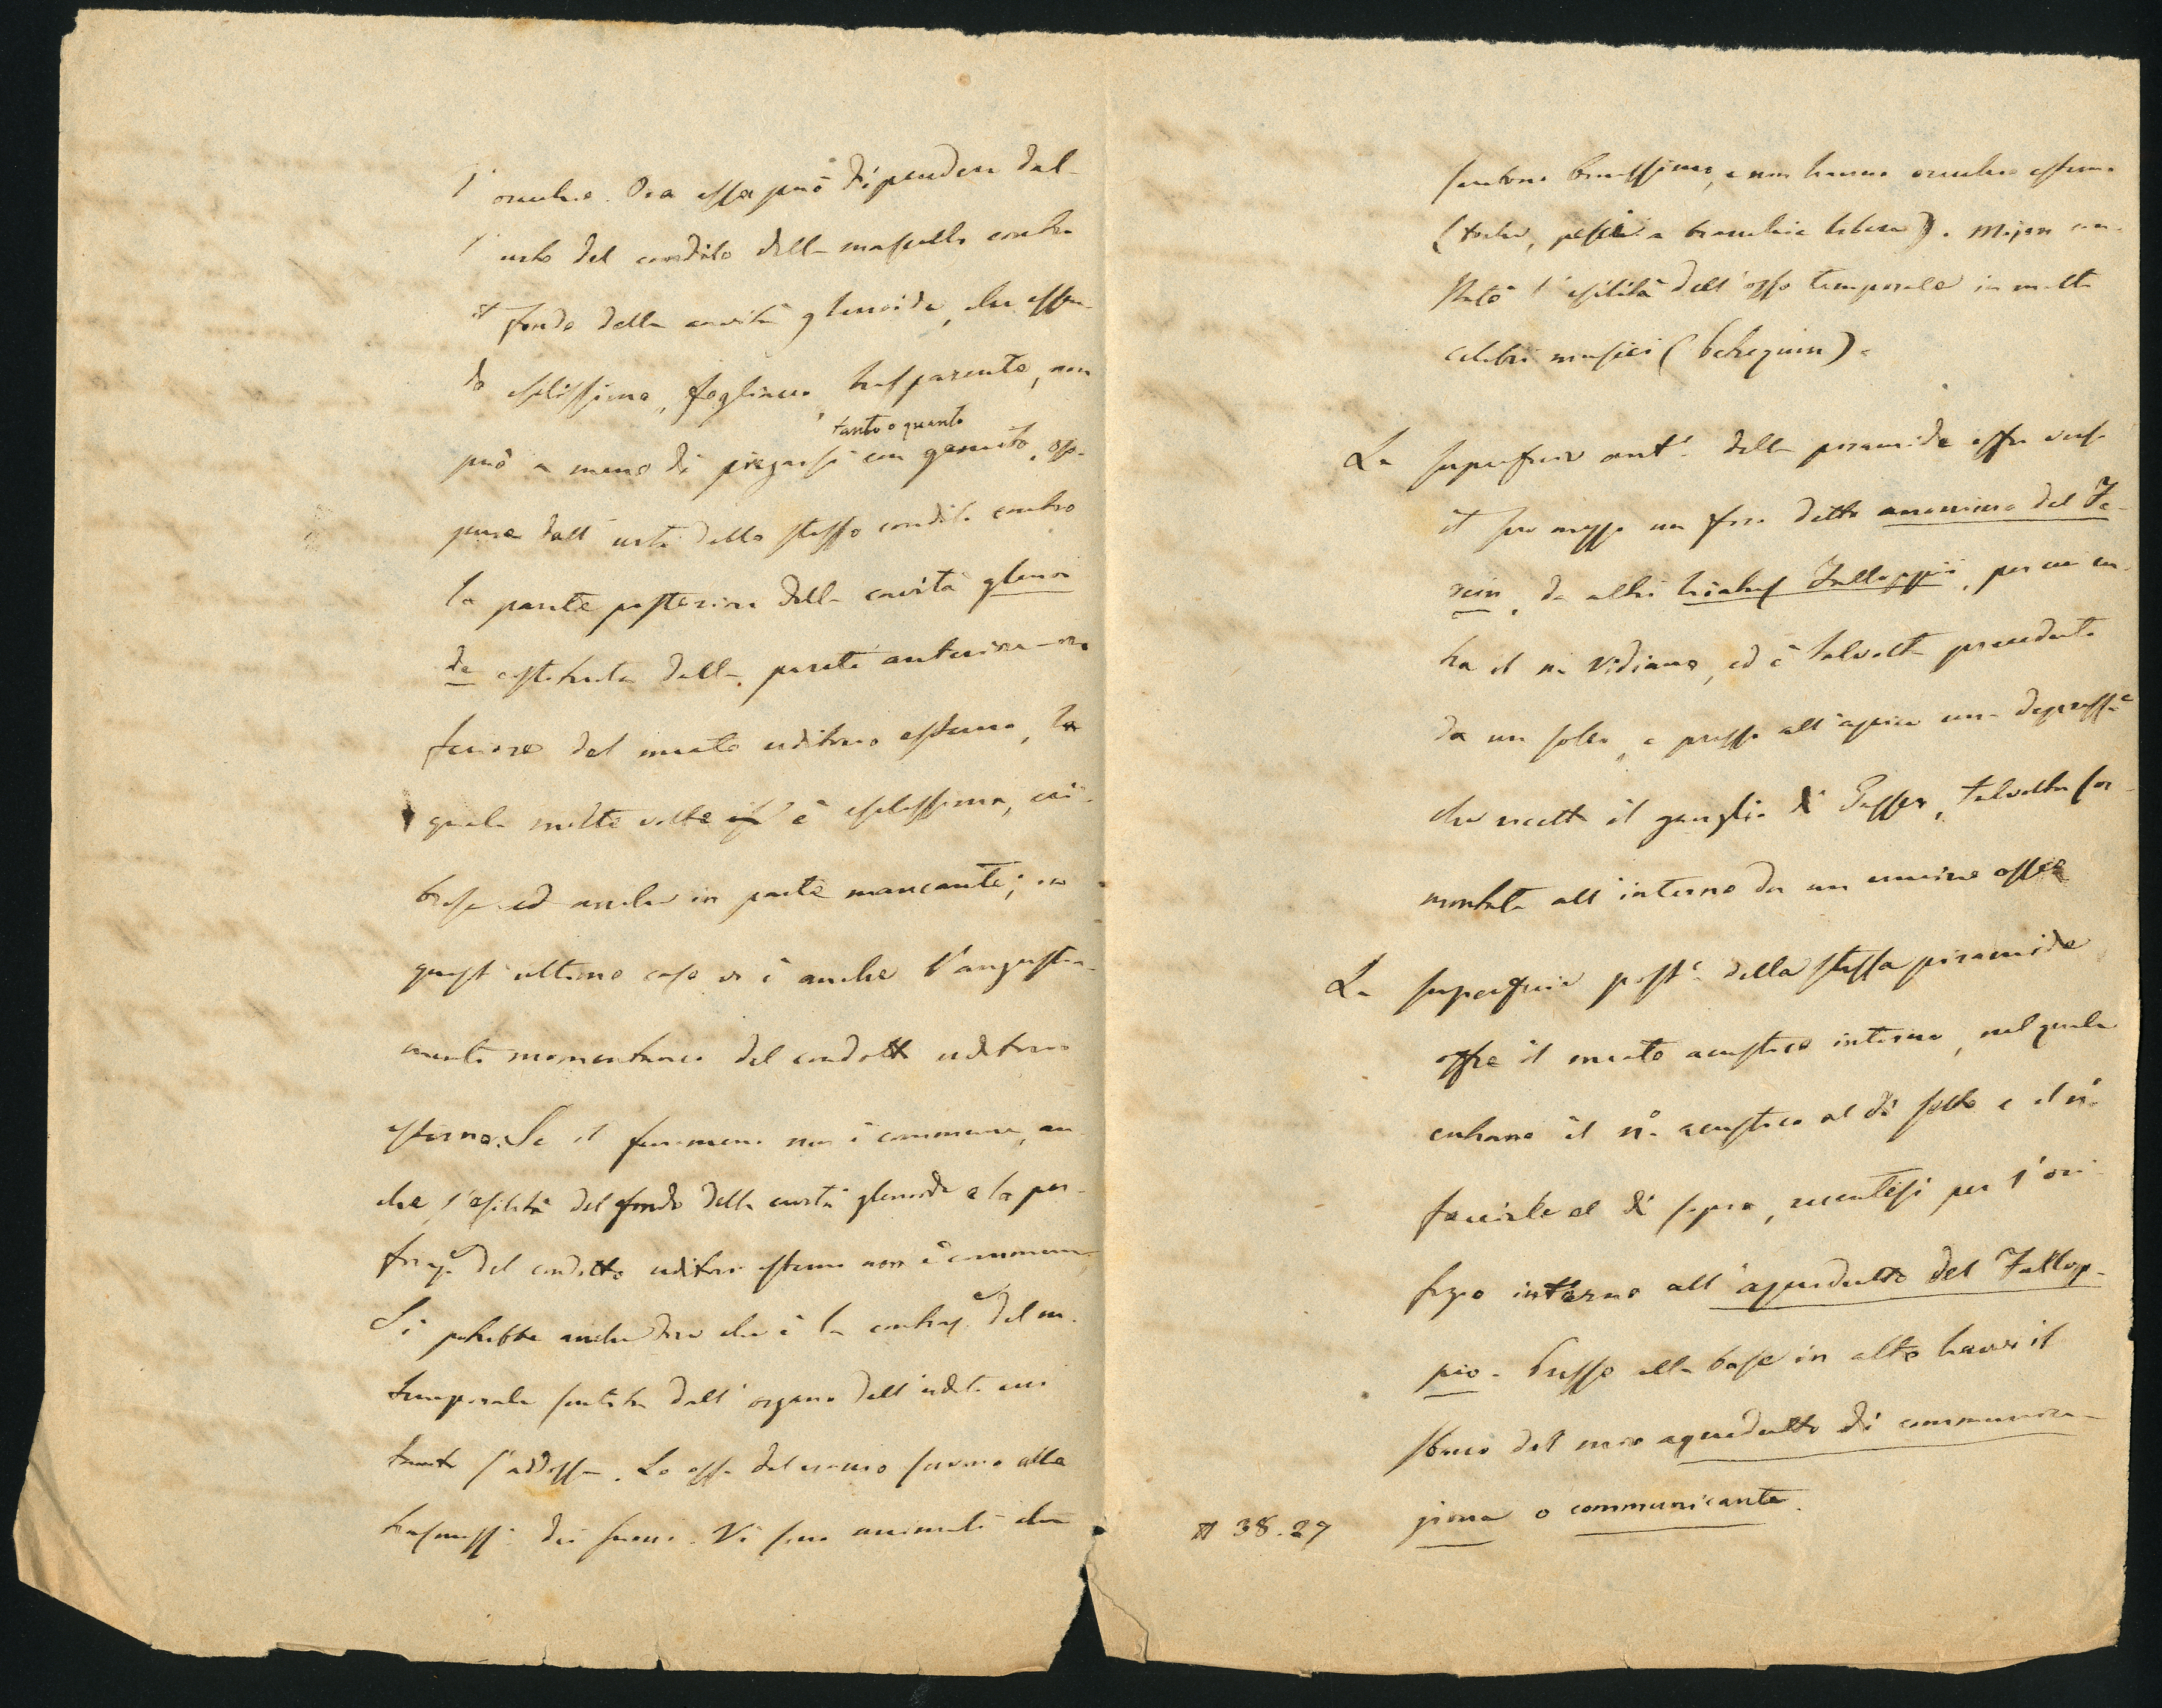 l' orecchio. Ora essa può dipendere dal-
l' urto del condilo della mascella contro
il fondo della cavità glenoide, che essen-
do esilissimo, fogliaceo, trasparente, non
può a meno di piegarsi con gemito, op-
tanto o quanto
pure dall' urto dello stesso condilo contro
la parete posteriore della cavità glenoi
de costituita dalla parete anteriore-in
feriore del meato uditorio esterno, la
quale molte volte è esilissima, cri-
brosa ed anche in parte mancante; in
quest' ultimo caso vi è anche l'angusta-
mento momentaneo del condotto uditorio
esterno. Se il fenomeno non è commune, an
che l'esilità del fondo della cavità glenoide e la per-
foraz.e del condotto uditorio esterno non è commune.
Si potrebbe anche dire che è la contraz.e del m.
temporale sentita dall' organo dell' udito cui
tanto s'addossa. Le ossa del cranio servono alla
trasmiss. dei suoni. Vi sono animali che
sentono benissimo, e non hanno orecchio esterno
(talpe, pesci a branchie libere). Mojon con-
statò l' esilità dell' osso temporale in molti
celebri musici (Bellequin).
La superficie ant.e della piramide offre verso
il suo mezzo un foro detto anonimo del Fe-
rein, da altri hiatus Falloppii, per cui en-
tra il n. Vidiano, ed è talvolta preceduto
da un solco, e presso all' apice una depress.e
che ricetta il ganglio di Gasser, talvolta sor-
montata all' interno da un uncino osseo
La superficie post.e della stessa piramide
offre il meato acustico interno, nel quale
entrano il n.o acustico al di sotto e il n.o
facciale al di sopra, recantesi per l' ori-
fizio interno all' aquedutto del Fallop-
pio. Presso alla base in alto havvi il
sbocco del mio aquedutto di communica-
zione o communicante.
38.27